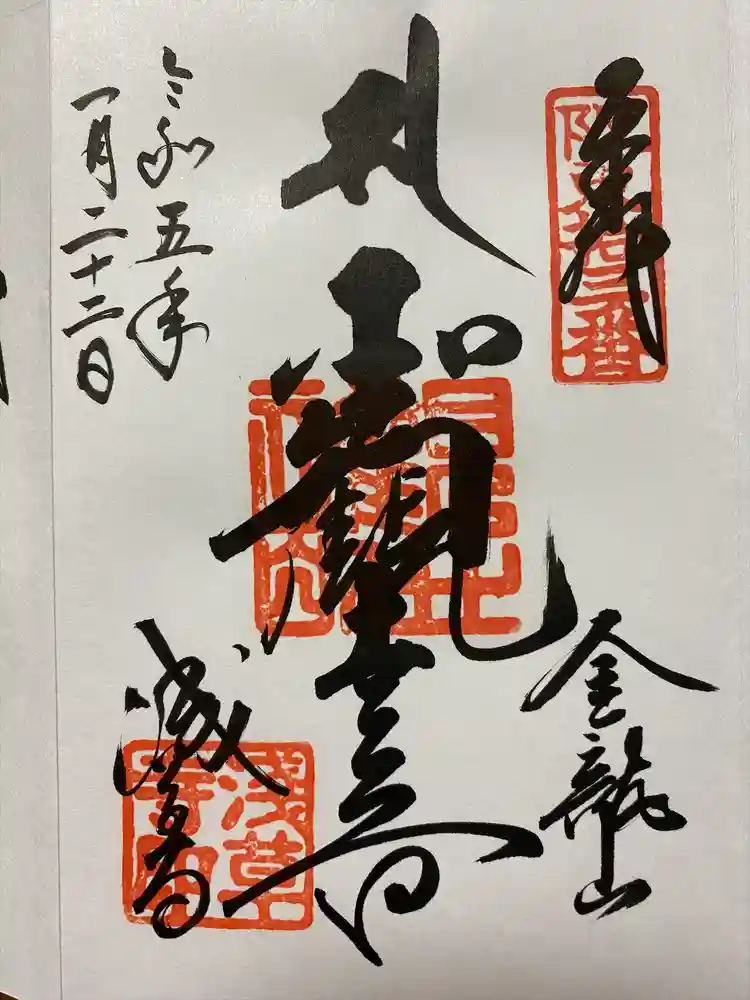 奉拝
坂東拾三番
聖観世音
金龍山
浅草寺
浅草寺印
令和五年
一月二十二日